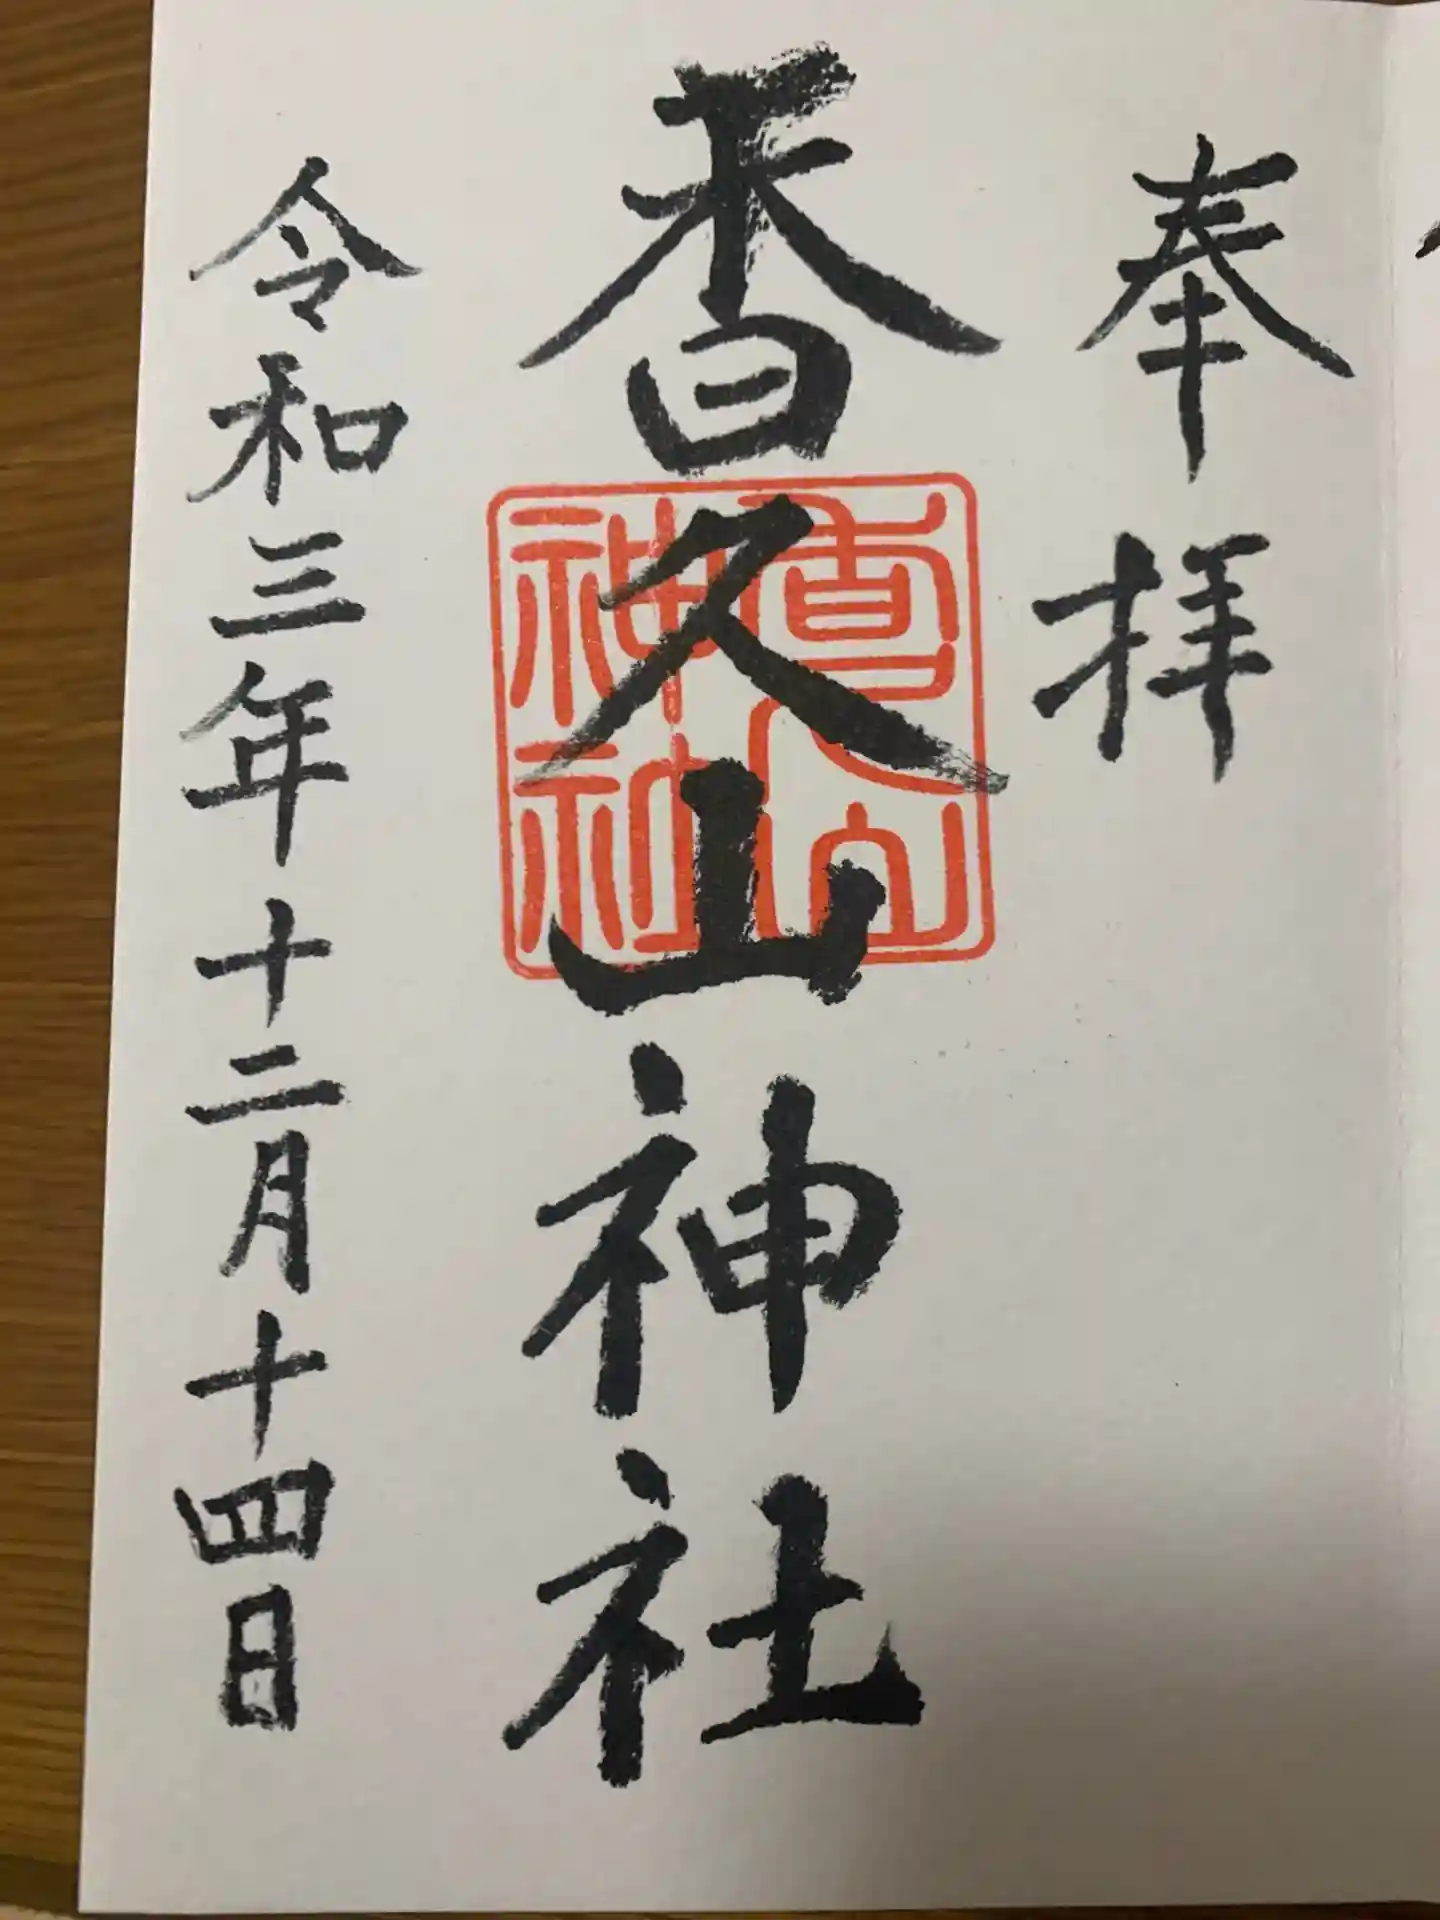 奉拝
香久山神社
香久山神社
令和三年十二月十四日